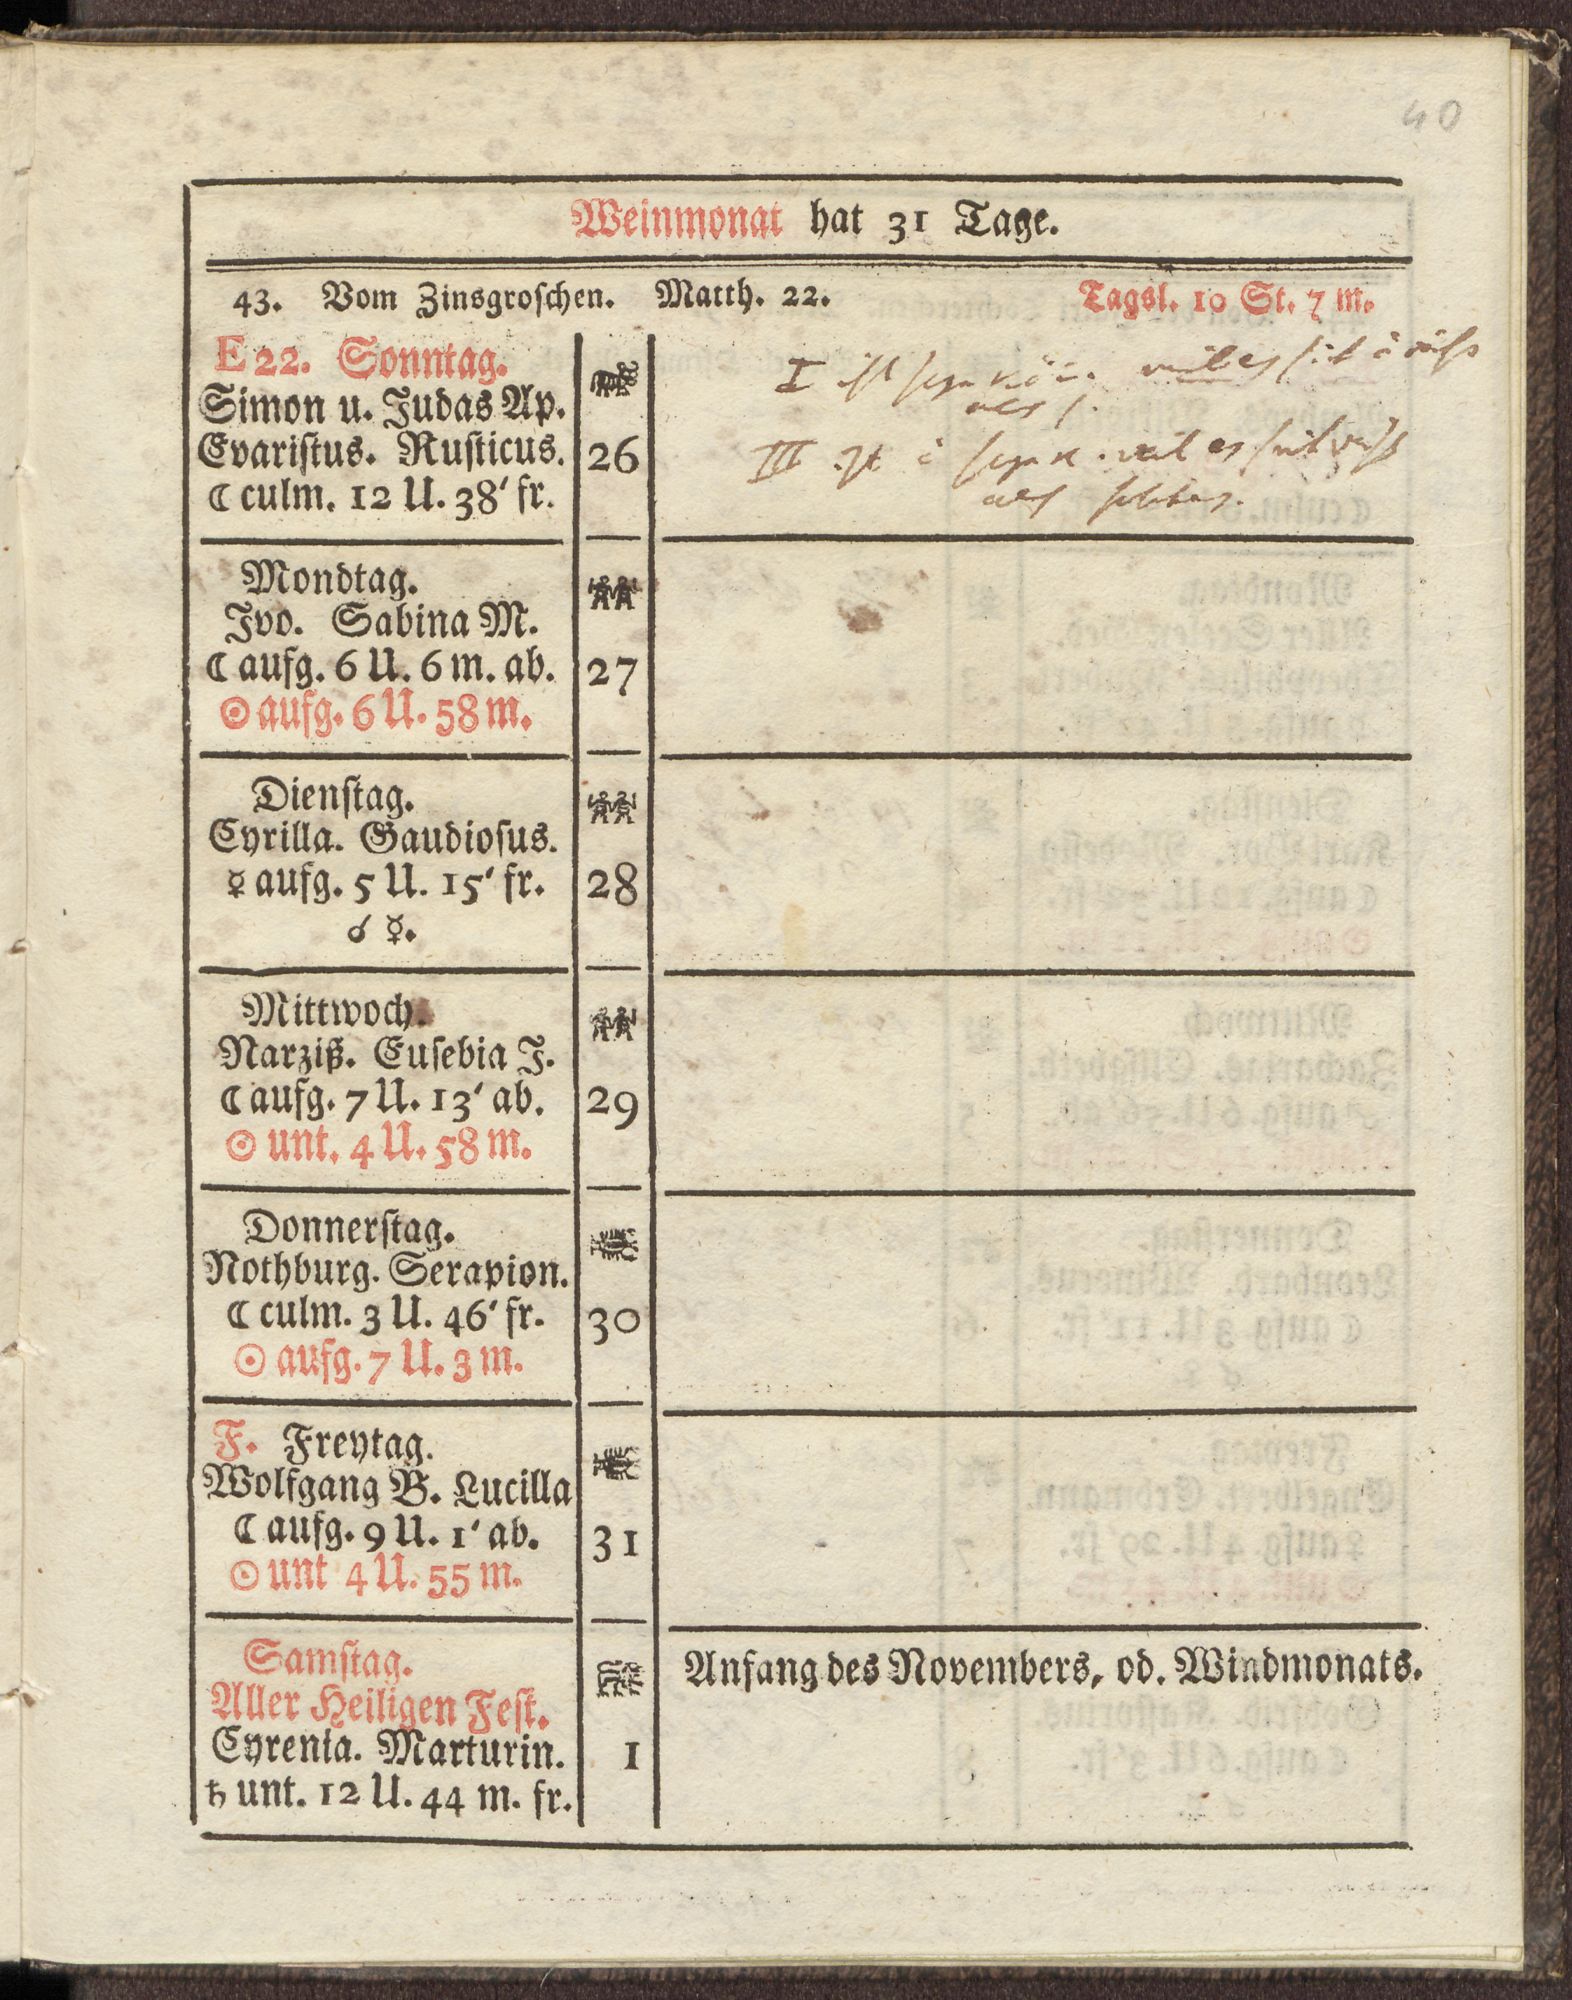 40
Weinmonat hat 31 Tage.
43. Vom Zinsgroschen. Matth. 22. Tagsl. 10 St. 7 m.
E 22. Sonntag.
Simon u. Judas Ap.
Evaristus. Rusticus. 26
☾ culm. 12 U. 38' fr.
I ist
III
als
Mondtag.
Ivo. Sabina M.
☾ aufg. 6 U. 6 m. ab. 27
☉ aufg. 6 U. 58 m.
Dienstag.
Cyrilla. Gaudiosus.
☿ aufg. 5 U. 15' fr. 28
☌ ☿.
Mittwoch.
Narziß. Eusebia J.
☾ aufg. 7 U. 13' ab. 29
☉ unt. 4 U. 58 m.
Donnerstag.
Nothburg. Serapion.
☾ culm. 3 U. 46' fr. 30
☉ aufg. 7 U. 3 m.
F. Freytag.
Wolfgang B. Lucilla
☾ aufg. 9 U. 1' ab. 31
☉ unt 4 U. 55 m.
Samstag. Anfang des Novembers, od. Windmonats.
Aller Heiligen Fest.
Cyrenia. Marturin. 1
♄ unt. 12 U. 44 m. fr.